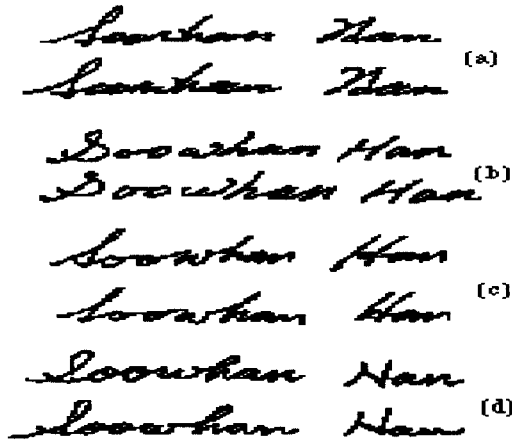 Soowhan Han
(a)
Soowhan Han
Soowhan Han
(b)
Soowhan Han
Soowhan Han
(c)
Soowhan Han
Soowhan Han
(d)
Soowhan Han